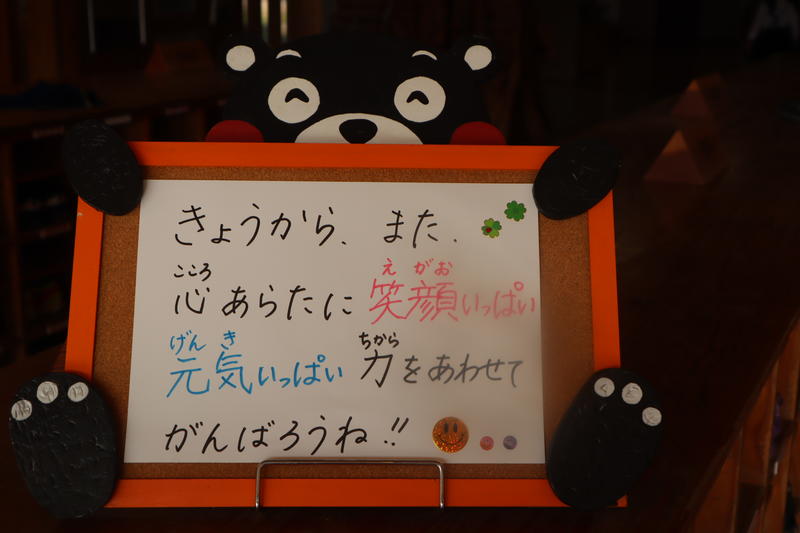 きょうから、また、
こころ えがお
心あらたに笑顔いっぱい
げんき ちから
元気いっぱい 力をあわせて
がんばろうね!!